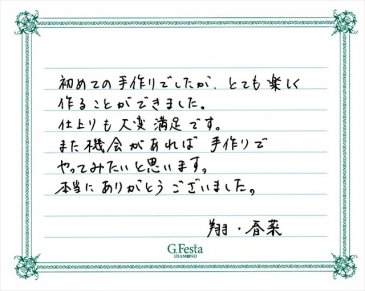 初めての手作りでしたが、とても楽しく
作ることができました。
仕上りも大変満足です。
また機会があれば手作りで
やってみたいと思います。
本当にありがとうございました。
翔・春菜
G.Festa
DIAMOND